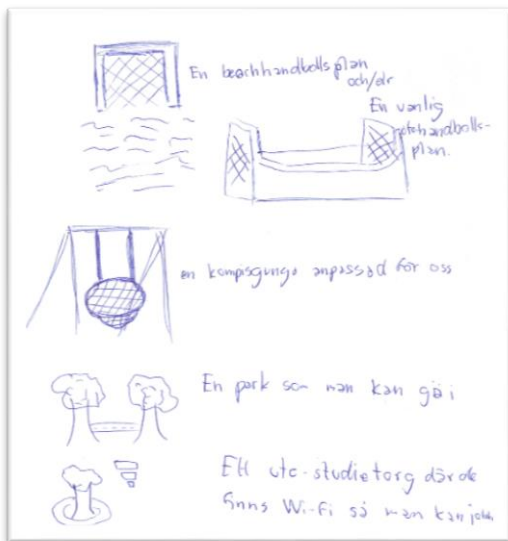 En beachhandbollsplan
och/elr
En vanlig
utehandbolls-
plan.
en kompisgunga anpassad för oss
En park som man kan gå i
Ett ute-studietorg där de
finns Wi-Fi så man kan jobb